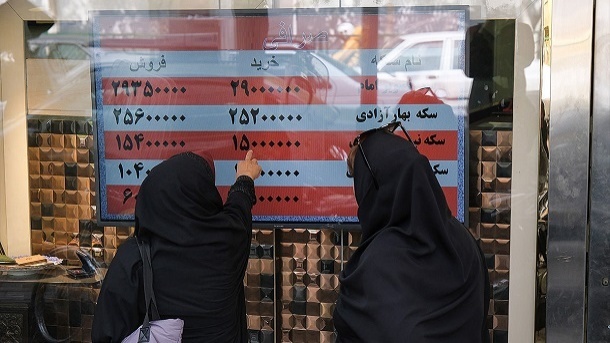 صرافی
نام سکه خرید فروش
امام ۲۹۰۰۰۰۰۰ ۲۹۳۵۰۰۰۰
سکه بهار آزادی ۲۵۲۰۰۰۰۰ ۲۵۶۰۰۰۰۰
سکه ۱۵۰۰۰۰۰۰ ۱۵۴۰۰۰۰۰
سکه